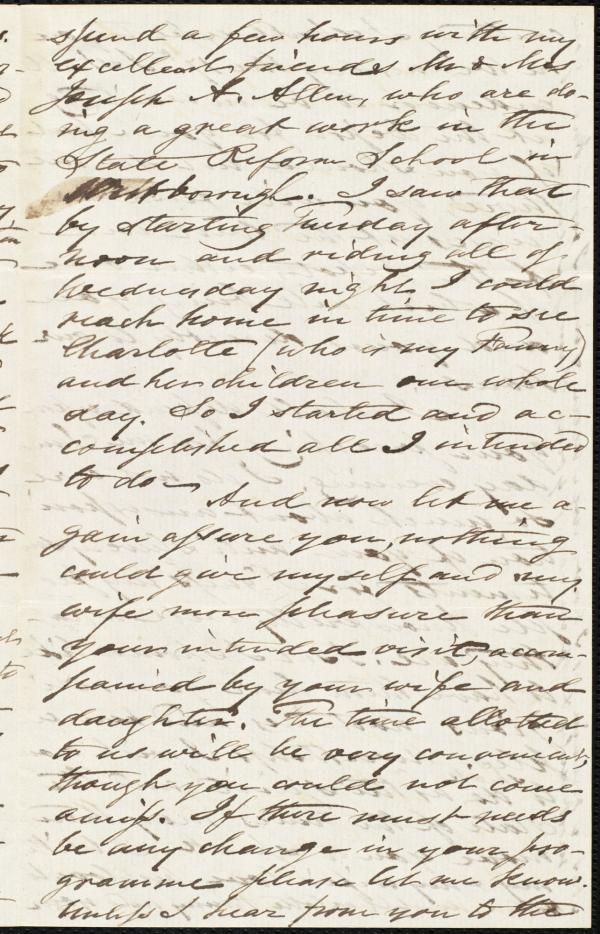 spend a few hours with my
excellent friends Mr & Mrs
Joseph A. Allen, who are do-
ing a great work in the
State Reform School in
Westborough. I saw that
by starting Tuesday after-
noon and riding all of
Wednesday night I could
reach home in time to see
Charlotte (who is my Fanny)
and her children one whole
day. So I started and ac-
complished all I intended
to do—
And now let me a-
gain assure you, nothing
could give myself and my
wife more pleasure than
your intended visit, accom-
panied by your wife and
daughter. The time allotted
to us will be very convenient,
though you could not come
amiss. If there must needs
be any change in your pro-
gramme please let me know.
Unless I hear from you to the